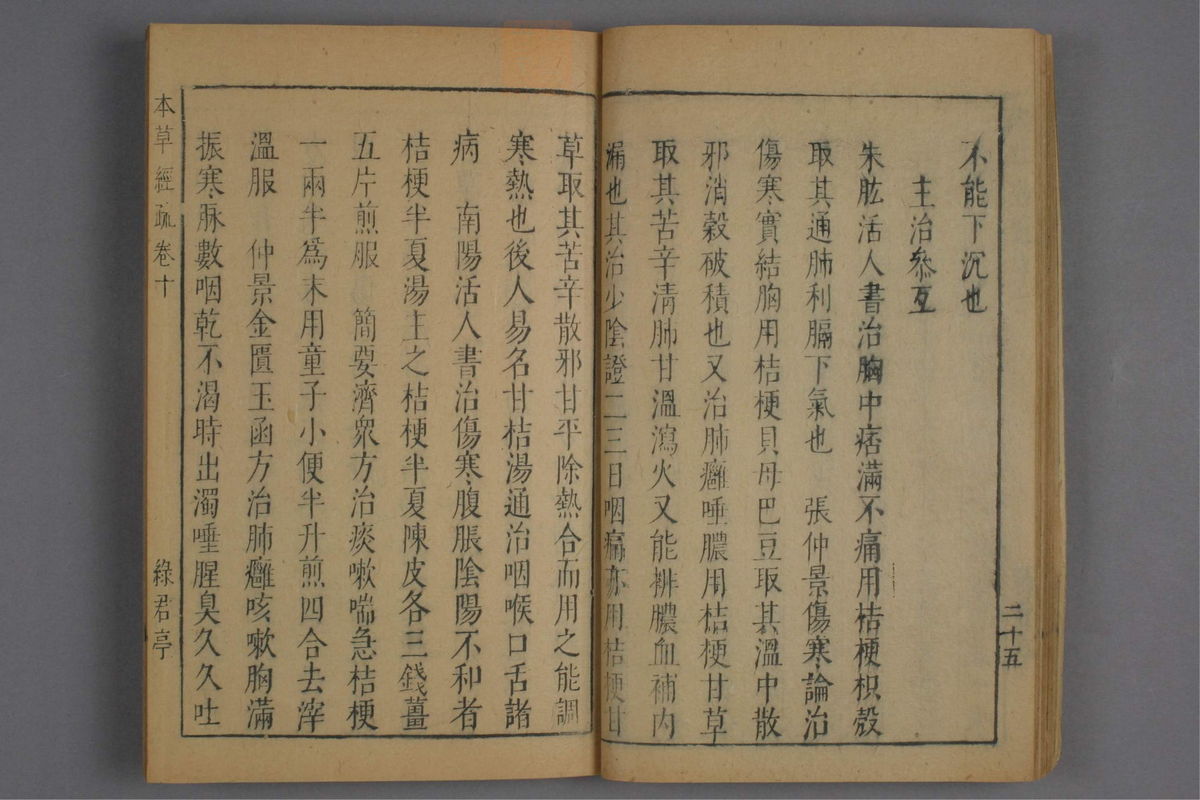 不能下沉也
主治參互
朱肱活人書治胸中痞滿不痛用桔梗枳殼
取其通肺利膈下氣也　張仲景傷寒論治
傷寒實結胸用桔梗貝母巴豆取其溫中散
邪消穀破積也又治肺癰唾膿用桔梗甘草
取其苦辛清肺甘溫瀉火又能排膿血補內
漏也其治少陰證二三日咽痛亦用桔梗甘
二十五
草取其苦辛散邪甘平除熱合而用之能調
寒熱也後人易名甘桔湯通治咽喉口舌諸
病　南陽活人書治傷寒腹脹陰陽不和者
桔梗半夏湯主之桔梗半夏陳皮各三錢薑
五片煎服　簡要濟衆方治痰嗽喘急桔梗
一兩半爲末用童子小便半升煎四合去滓
溫服　仲景金匱玉函方治肺癰咳嗽胸滿
振寒脉數咽乾不渴時出濁唾腥臭久久吐
本草經疏卷十
綠君亭